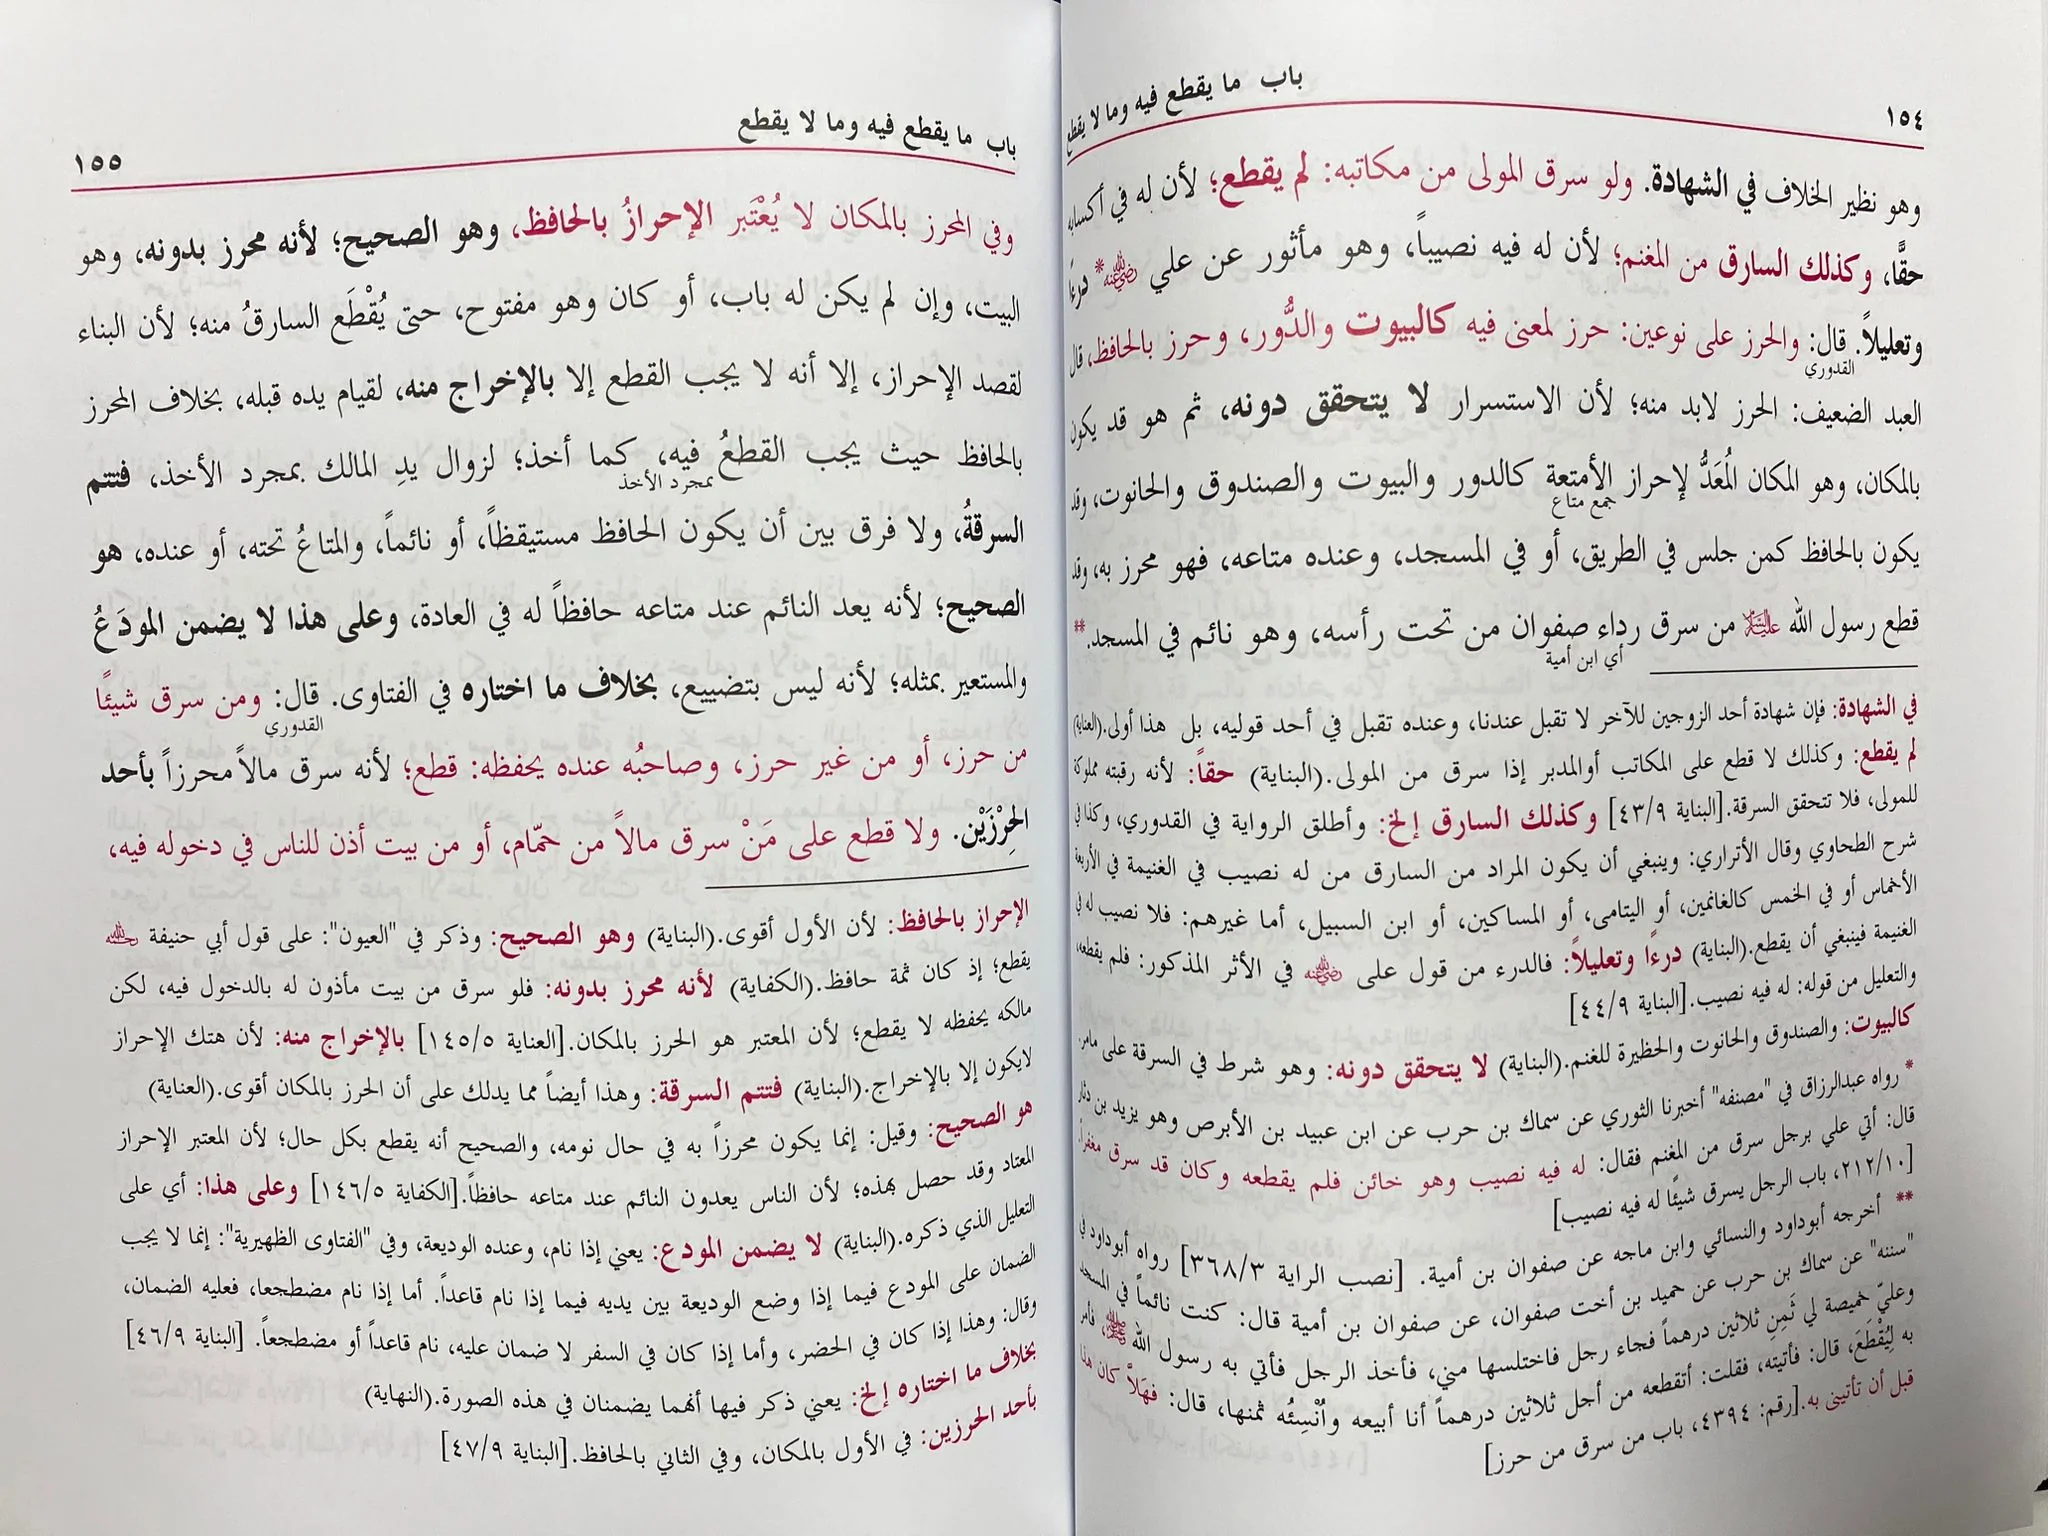 ١٥٤
باب ما يقطع فيه وما لا يقطع
وهو نظير الخلاف في الشهادة. ولو سرق المولى من مكاتبه: لم يقطع؛ لأن له في أكسابه
حقًّا، وكذلك السارق من المغنم؛ لأن له فيه نصيباً، وهو مأثور عن علي رضي الله عنه* درءًا
وتعليلاً. قال: والحرز على نوعين: حرز لمعنى فيه كالبيوت والدُّور، وحرز بالحافظ، قال
القدوري
العبد الضعيف: الحرز لابد منه؛ لأن الاستسرار لا يتحقق دونه، ثم هو قد يكون
بالمكان، وهو المكان المُعَدُّ لإحراز الأمتعة كالدور والبيوت والصندوق والحانوت، وقد
جمع متاع
يكون بالحافظ كمن جلس في الطريق، أو في المسجد، وعنده متاعه، فهو محرز به، وقد
قطع رسول الله عليه السلام من سرق رداء صفوان من تحت رأسه، وهو نائم في المسجد.**
أي ابن أمية
في الشهادة: فإن شهادة أحد الزوجين للآخر لا تقبل عندنا، وعنده تقبل في أحد قوليه، بل هذا أولى.(العناية)
لم يقطع: وكذلك لا قطع على المكاتب أوالمدبر إذا سرق من المولى.(البناية) حقاً: لأنه رقبته مملوكة
للمولى، فلا تتحقق السرقة.[البناية ٤٣/٩] وكذلك السارق إلخ: وأطلق الرواية في القدوري، وكذا في
شرح الطحاوي وقال الأتراري: وينبغي أن يكون المراد من السارق من له نصيب في الغنيمة في الأربعة
الأخماس أو في الخمس كالغانمين، أو اليتامى، أو المساكين، أو ابن السبيل، أما غيرهم: فلا نصيب له في
الغنيمة فينبغي أن يقطع.(البناية) درءًا وتعليلاً: فالدرء من قول على رضي الله عنه في الأثر المذكور: فلم يقطعه،
والتعليل من قوله: له فيه نصيب.[البناية ٤٤/٩]
كالبيوت: والصندوق والحانوت والحظيرة للغنم.(البناية) لا يتحقق دونه: وهو شرط في السرقة على مامر.
* رواه عبدالرزاق في "مصنفه" أخبرنا الثوري عن سماك بن حرب عن ابن عبيد بن الأبرص وهو يزيد بن دثار
قال: أتي علي برجل سرق من المغنم فقال: له فيه نصيب وهو خائن فلم يقطعه وكان قد سرق مغفراً.
[٢١٢/١٠، باب الرجل يسرق شيئًا له فيه نصيب]
** أخرجه أبوداود والنسائي وابن ماجه عن صفوان بن أمية. [نصب الراية ٣٦٨/٣] رواه أبوداود في
"سننه" عن سماك بن حرب عن حميد بن أخت صفوان، عن صفوان بن أمية قال: كنت نائماً في المسجد
وعليّ خميصة لي ثَمِنِ ثلاثين درهماً فجاء رجل فاختلسها مني، فأخذ الرجل فأتي به رسول الله ﷺ، فأمر
به لِيُقْطَعَ، قال: فأتيته، فقلت: أتقطعه من أجل ثلاثين درهماً أنا أبيعه وأُنْسِئُه ثمنها، قال: فهَلاَّ كان هذا
قبل أن تأتيني به.[رقم: ٤٣٩٤، باب من سرق من حرز]
باب ما يقطع فيه وما لا يقطع
١٥٥
وفي المحرز بالمكان لا يُعْتَبر الإحرازُ بالحافظ، وهو الصحيح؛ لأنه محرز بدونه، وهو
البيت، وإن لم يكن له باب، أو كان وهو مفتوح، حتى يُقْطَع السارقُ منه؛ لأن البناء
لقصد الإحراز، إلا أنه لا يجب القطع إلا بالإخراج منه، لقيام يده قبله، بخلاف المحرز
بالحافظ حيث يجب القطعُ فيه، كما أخذ؛ لزوال يدِ المالك بمجرد الأخذ، فتتم
بمجرد الأخذ
السرقةُ، ولا فرق بين أن يكون الحافظ مستيقظاً، أو نائماً، والمتاعُ تحته، أو عنده، هو
الصحيح؛ لأنه يعد النائم عند متاعه حافظاً له في العادة، وعلى هذا لا يضمن المودَعُ
والمستعير بمثله؛ لأنه ليس بتضييع، بخلاف ما اختاره في الفتاوى. قال: ومن سرق شيئًا
القدوري
من حرز، أو من غير حرز، وصاحبُه عنده يحفظه: قطع؛ لأنه سرق مالاً محرزاً بأحد
الحِرْزَيْن. ولا قطع على مَنْ سرق مالاً من حمّام، أو من بيت أذن للناس في دخوله فيه،
الإحراز بالحافظ: لأن الأول أقوى.(البناية) وهو الصحيح: وذكر في "العيون": على قول أبي حنيفة رحمه الله
يقطع؛ إذ كان ثمة حافظ.(الكفاية) لأنه محرز بدونه: فلو سرق من بيت مأذون له بالدخول فيه، لكن
مالكه يحفظه لا يقطع؛ لأن المعتبر هو الحرز بالمكان.[العناية ١٤٥/٥] بالإخراج منه: لأن هتك الإحراز
لايكون إلا بالإخراج.(البناية) فتتم السرقة: وهذا أيضاً مما يدلك على أن الحرز بالمكان أقوى.(العناية)
هو الصحيح: وقيل: إنما يكون محرزاً به في حال نومه، والصحيح أنه يقطع بكل حال؛ لأن المعتبر الإحراز
المعتاد وقد حصل بهذه؛ لأن الناس يعدون النائم عند متاعه حافظاً.[الكفاية ١٤٦/٥] وعلى هذا: أي على
التعليل الذي ذكره.(البناية) لا يضمن المودع: يعني إذا نام، وعنده الوديعة، وفي "الفتاوى الظهيرية": إنما لا يجب
الضمان على المودع فيما إذا وضع الوديعة بين يديه فيما إذا نام قاعداً. أما إذا نام مضطجعا، فعليه الضمان،
وقال: وهذا إذا كان في الحضر، وأما إذا كان في السفر لا ضمان عليه، نام قاعداً أو مضطجعاً. [البناية ٤٦/٩]
بخلاف ما اختاره إلخ: يعني ذكر فيها أنهما يضمنان في هذه الصورة.(النهاية)
بأحد الحرزين: في الأول بالمكان، وفي الثاني بالحافظ.[البناية ٤٧/٩]